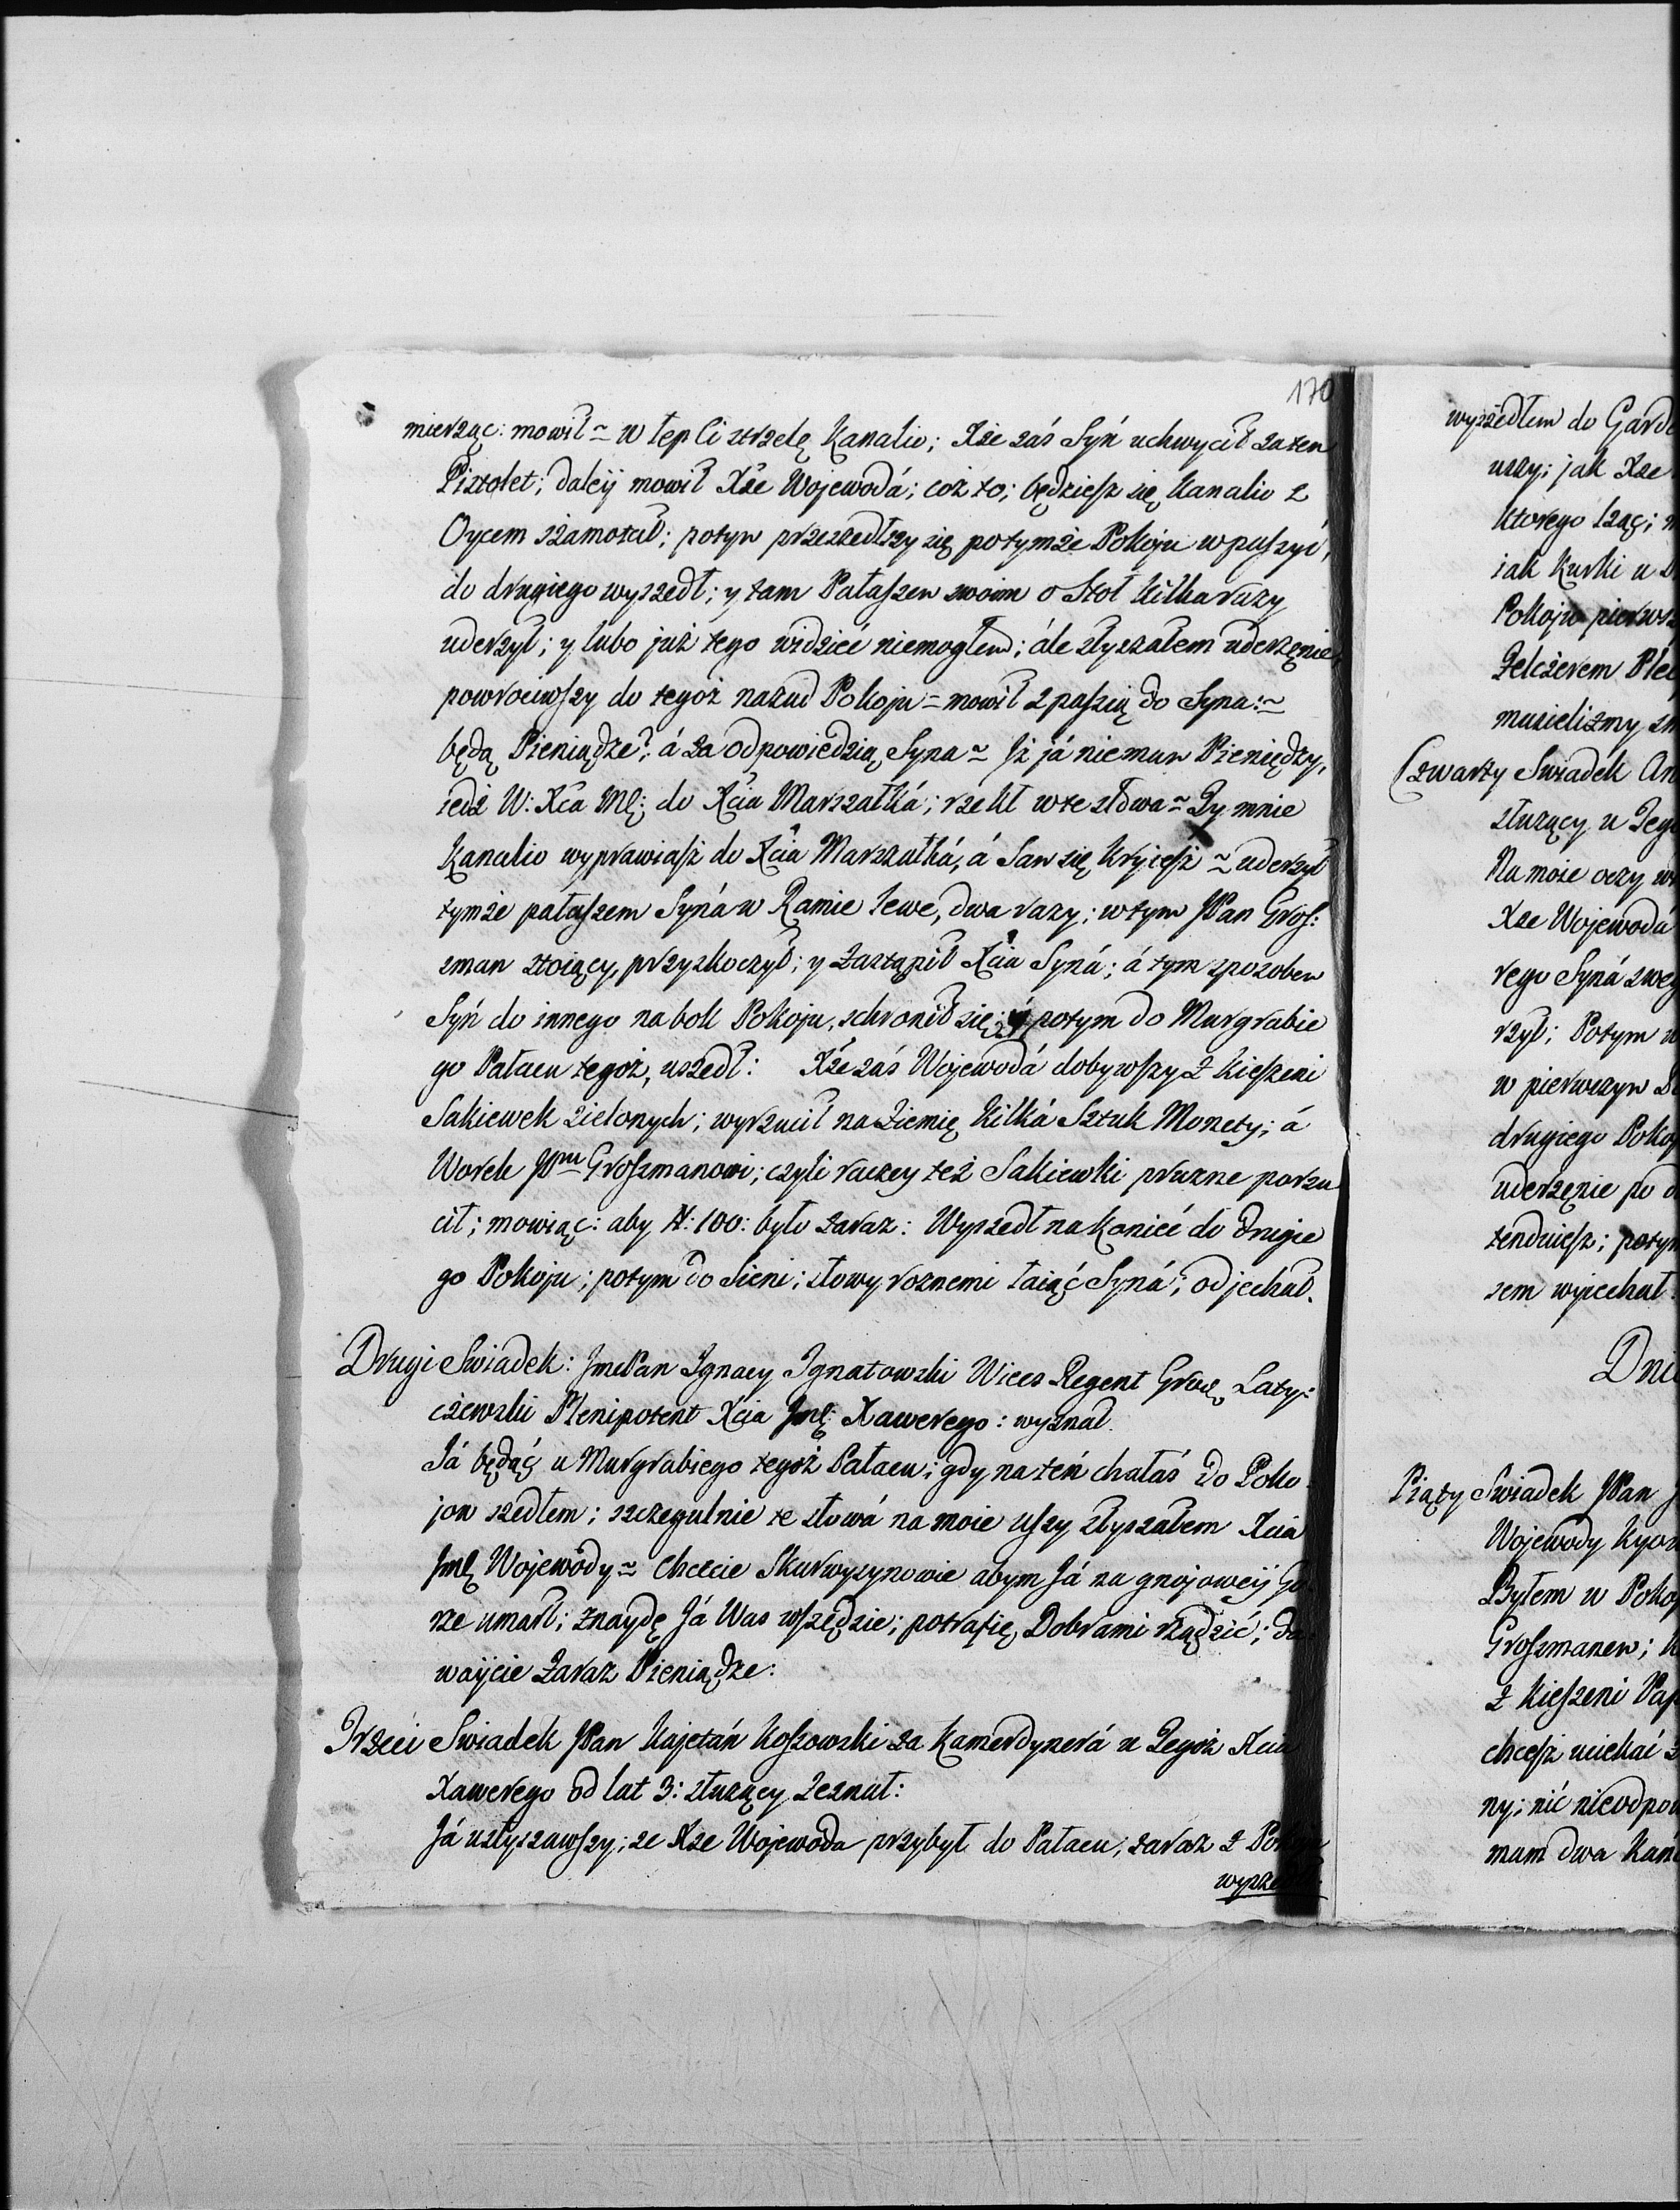 170
mierząc: mowił ~ w łep Ci strzelę Kanalio; Xże zaś Syń uchwycił za ten
Pistolet; daleÿ mowił Xże Wojewodá; coż to; będziesz się Kanalio z
Oycem szamotał; potym przeszedłszy się potymże Pokoju w passyi,
do drugiego wyszedł; y tam Pałaszem swoim o Stoł kilka razy
uderzył; y lubo już tego widzieć niemogłem; ále słyszałem uderzęnie,
powrociwszy do tegoż nazad Pokoju = mowił z passią do Syna: ~
będą Pieniądze? á za odpowiedzią Syna ~ Jż já niemam Pieniędzy,
iedź W: Xca Mć; do Xcia Marszałká; rzekł w te słowa ~ Ty mnie
Kanalio wyprawiasz do Xcia Marszałká, á Sam się kryiesz ~ uderzył
tymże pałaszem Syná w Ramie lewe, dwa razy; w tym JPan Gros:
sman stoiący, przyskoczył; y zastąpił Xcia Syná; á tym sposobem
Syń do innego na bok Pokoju, schronił się; y potym do Murgrabie
go Pałacu tegoż, uszedł: Xże zaś Wojewodá dobywszy z kieszeni
Sakiewek zielonych; wyrzucił na Ziemię kilká Sztuk Monety; á
Worek JPnu Groszmanowi; czyli raczey też Sakiewki prużne porzu
cił; mowiąc: aby #: 100: było zaraz: Wyszedł na koniec do drugie
go Pokoju; potym do Sieni; słowy roznemi łaiąć Syná; odjechał.
Drugi Swiadek: JmcPan Ignacy Ignatowski Wices Regent Grod. Laty:
czewski Plenipotent Xcia Jmć Xawerego: wyznał.
Já będąć u Murgrabiego tegoż Pałacu; gdy na teń chałaś do Poko
jow szedłem; szczegulnie te słowá na moie uszy słyszałem Xcia
Jmć Wojewody ~ Chcecie Skurwysynowie abym Já na gnojoweÿ Gó
rze umarł; znaydę Já Was wszędzie; potrafię Dobrami rządzić; da
waÿcie zaraz Pieniądze:
Trzeci Swiadek JPan Kajetán Koszowski za Kamerdynerá u Tegoż Xcia
Xawerego od lat 3: słuzący zeznał:
Já usłyszawszy; że Xże Wojewoda przybył do Pałacu, zaraz z
wyszedłem do
uszy; jak Xże
ktorego
iak Kurki u
Pokoju
Felczerem
musielizmy
Czwarty Swiadek An
słuzący u Teg
Na moie oczy
Xże Wojewodá
rego Syná
rzył; Potym
w pierwszym
drugiego
uderzęnie po
tendziesz; potym
szem wyiechał.
Dni
Piąty Swiadek JPan
Wojewody
Byłem w
z kieszeni
chcesz uciekać
ny; nić
mam dwa